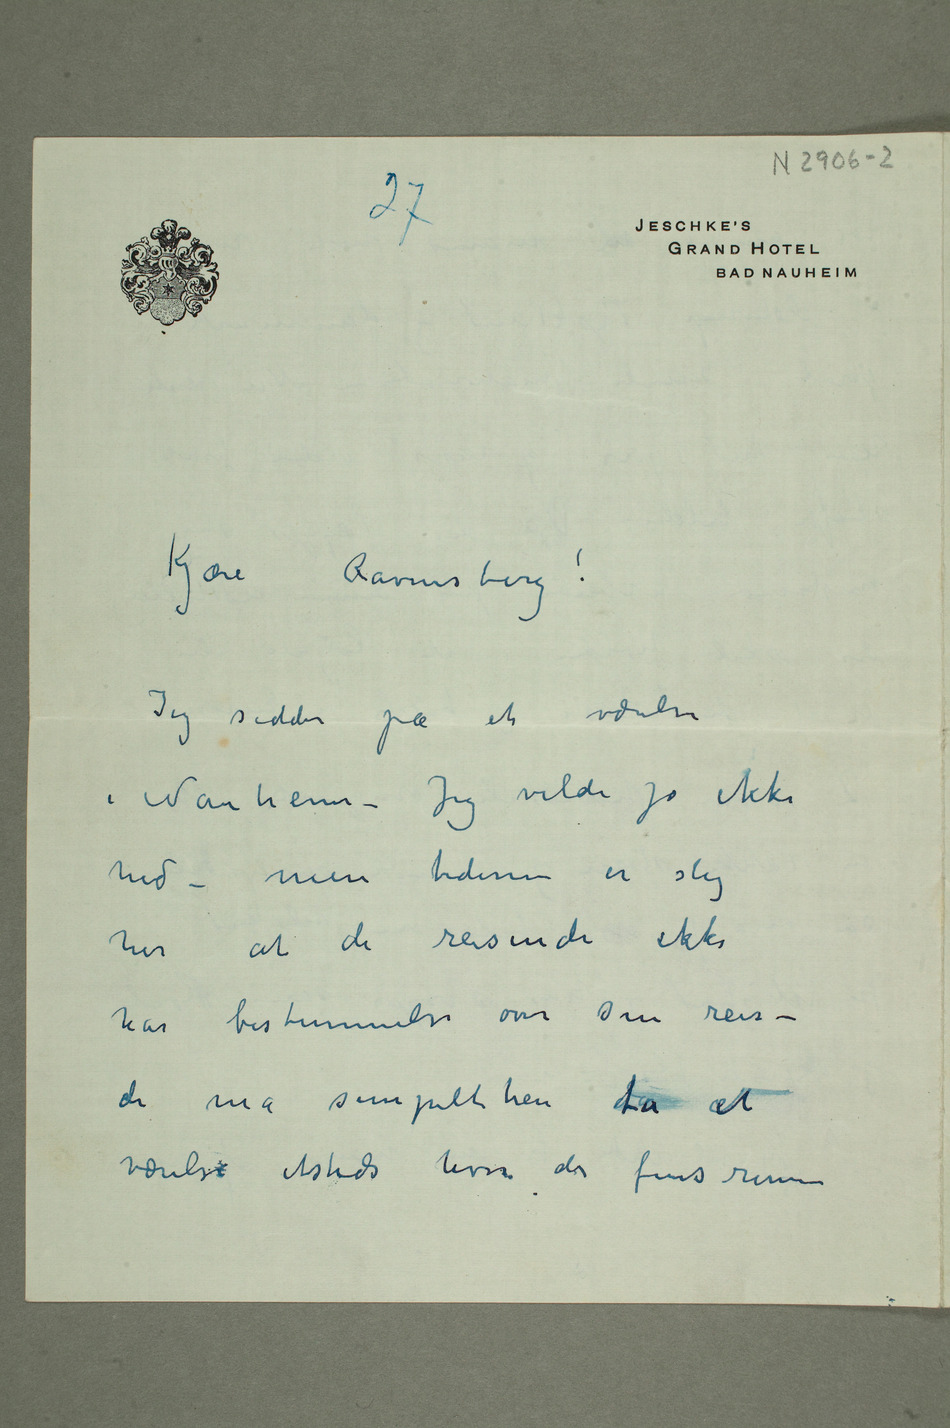 N 2906-2
27
JESCHKE'S
GRAND HOTEL
BAD NAUHEIM
Kjære Ravensberg!
Jeg sidder på et værelse
i Nauheim – Jeg vilde jo ikke
hid – men tiderne er slig
her at de reisende ikke
har bestemmelse over sin reise –
de må simpelthen ta et
værelse etsteds hvor der fins rum